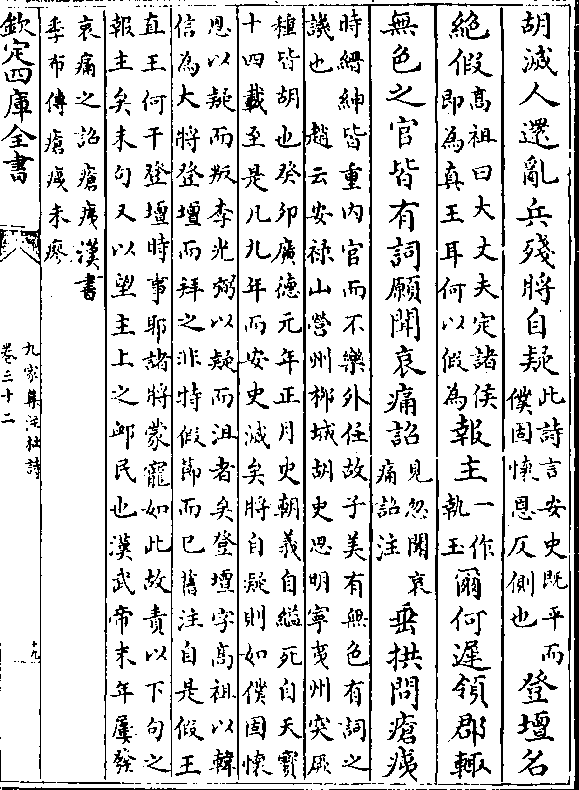 胡滅人還亂兵殘將自疑此詩言安史既平而僕固懷恩反側也登壇名
絶假髙祖曰大丈夫定諸侯即為真王耳何以假為報主一作執玉爾何遲領郡輒
無色之官皆有詞願聞哀痛詔見忽聞哀痛詔注垂拱問瘡痍
時縉紳皆重内官而不樂外任故子美有無色有詞之
譏也 趙云安禄山營州栁城胡史思明寧夷州突厥
種皆胡也癸卯廣德元年正月史朝義自縊死自天寳
十四載至是凡九年而安史滅矣將自疑則如僕固懷
恩以疑而叛李光弼以疑而沮者矣登壇字髙祖以韓
信為大將登壇而拜之非特假節而已舊注自是假王
直王何干登壇時事耶諸將蒙寵如此故責以下句之
報主矣末句又以望主上之邮民也漢武帝末年屢發
哀痛之詔瘡痍漢書
季布傳瘡痍未瘳
欽定四庫全書
九家集注杜詩
卷三十二
十九